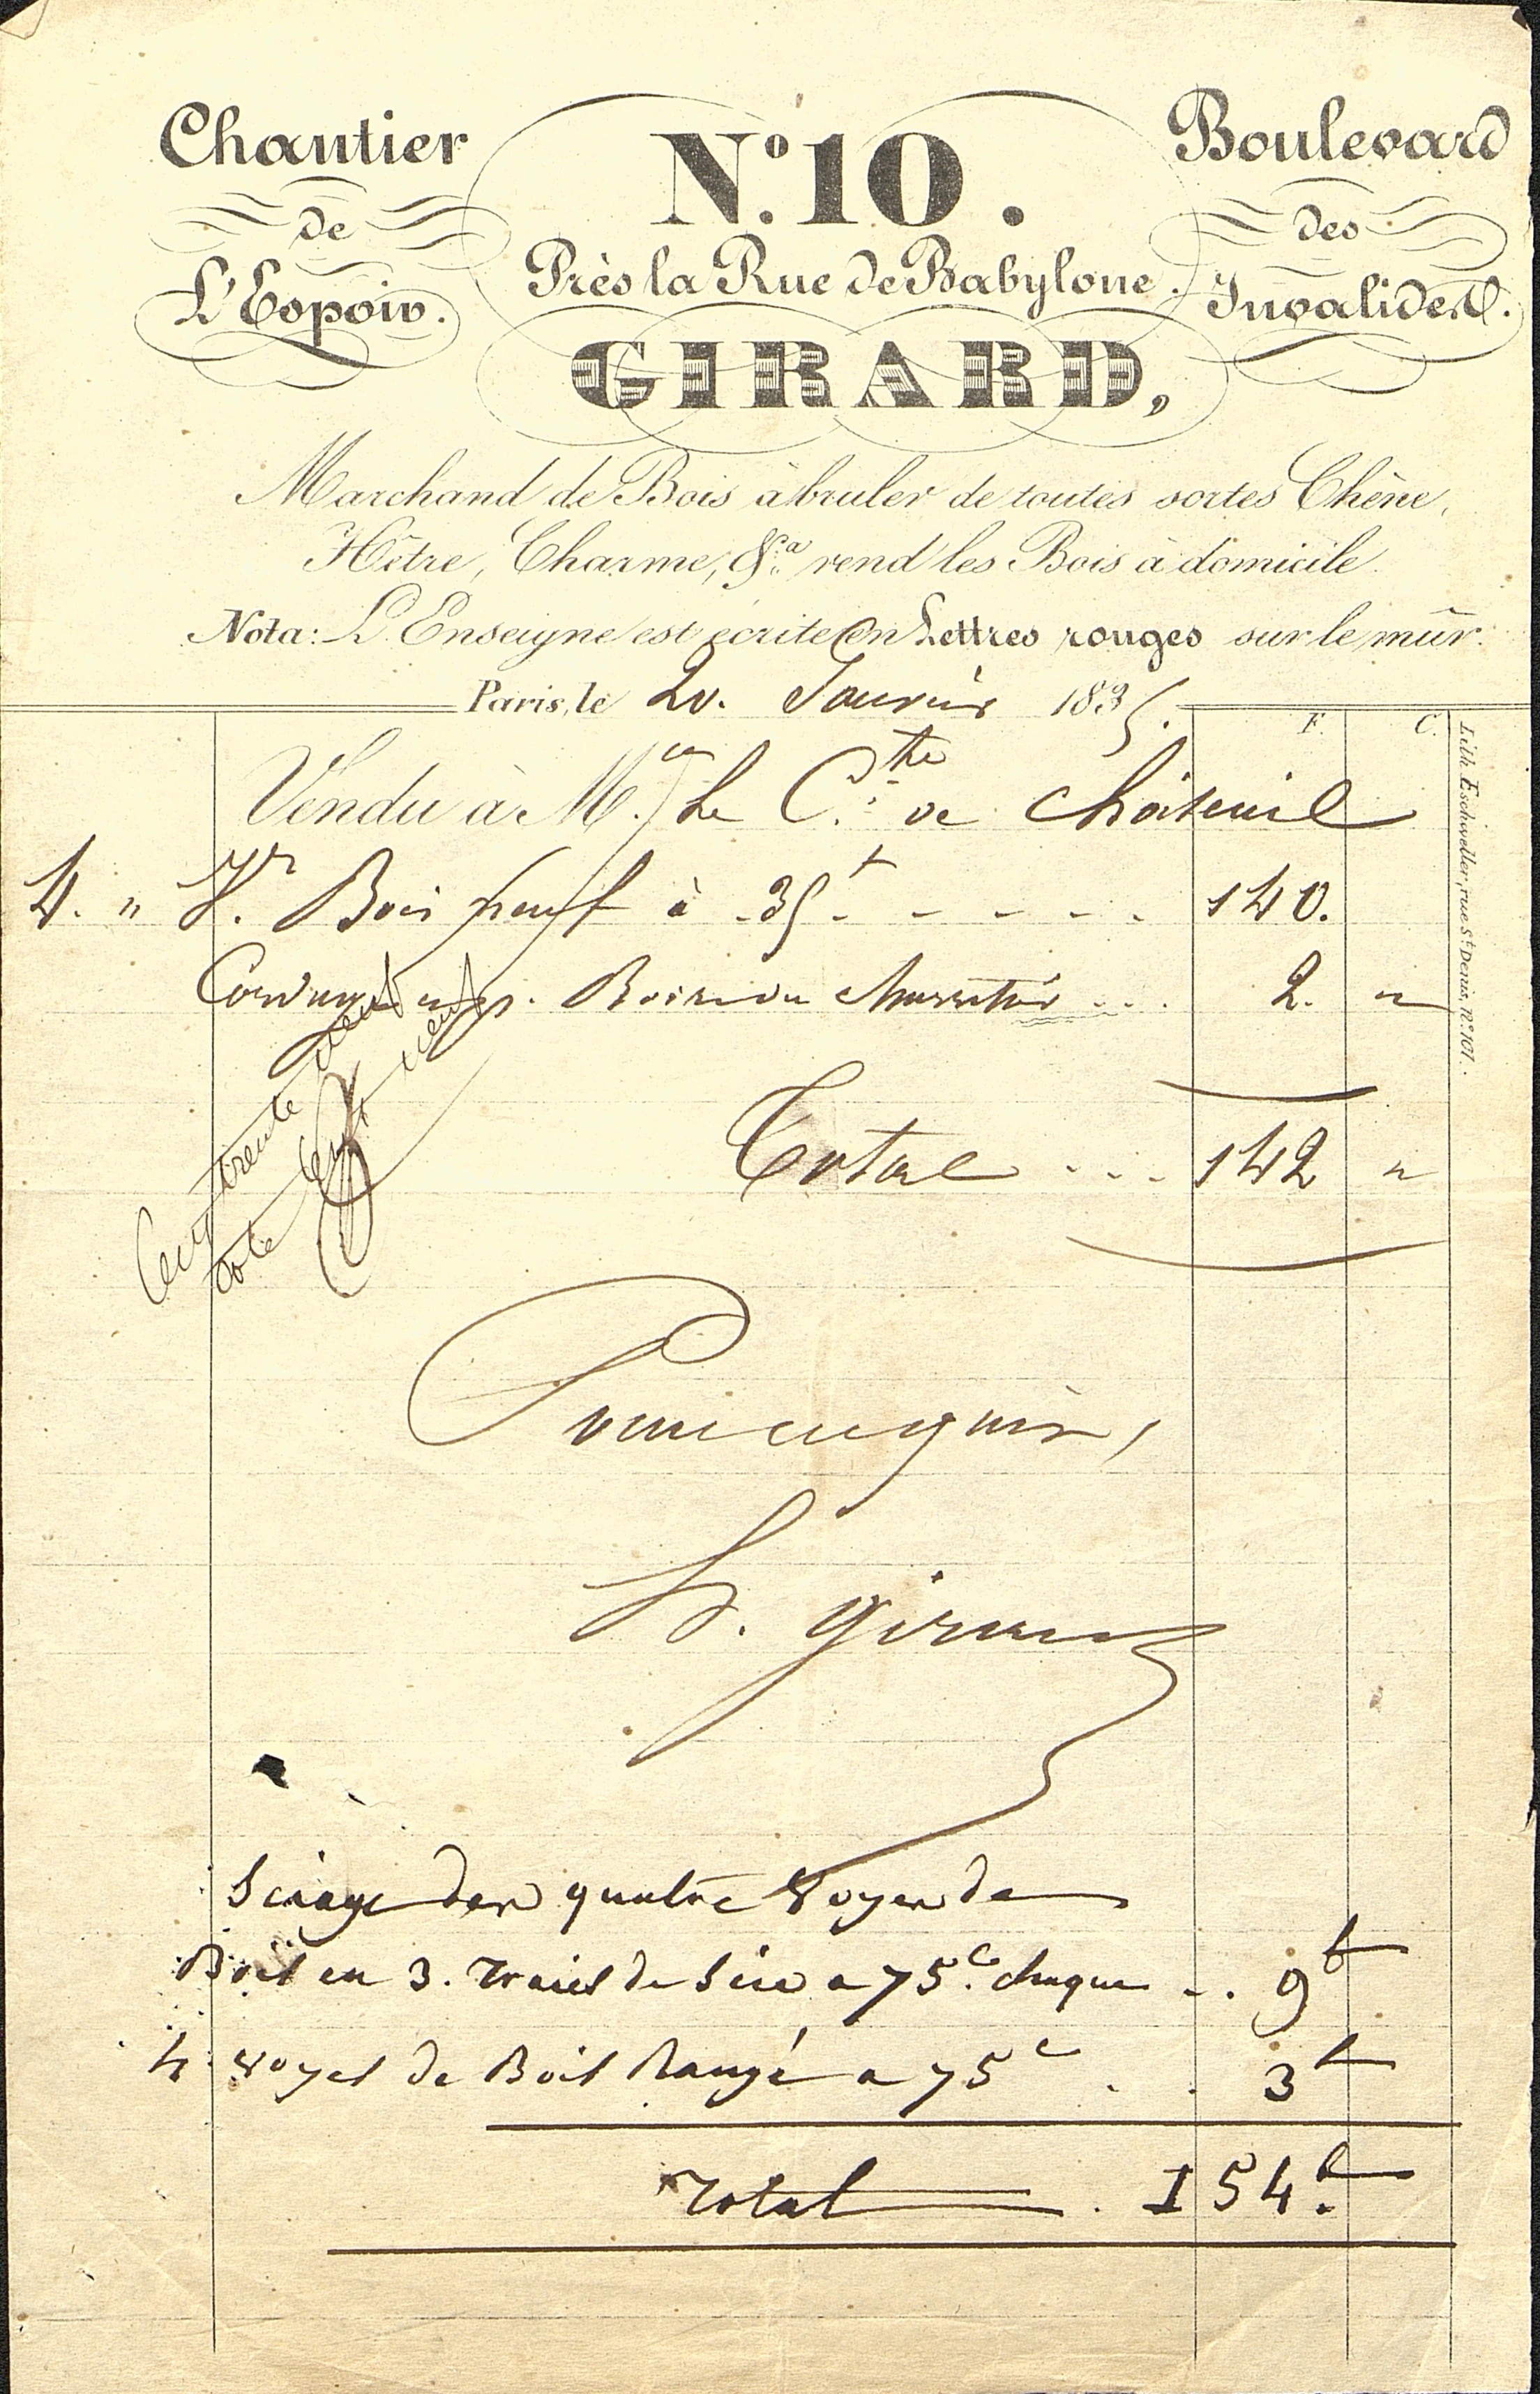 Chantier
de
L'Espoir.
N.º 10.
Près la Rue de Babylone.
Boulevard
des
Invalides.
GIRARD,
Marchand de Bois à bruler de toutes sortes Chêne,
Hêtre, Charme, &.ª rend les Bois à domicile.
Nota: L'Enseigne est écrite en Lettres rouges sur le mûr.
Paris, le 20. Janvier 1835.
F. C.
Vendu à M. Le C.te de Choiseuil
4. " V. Bois neuf à 35 f 140.
2. "
Total 142 "
Cent trente neuf
Cent neuf
Pour acquit,
Girard
Sciage des quatre voyes de
Bois en 3. traits de Scie a 75 c. chaque 9 f
4 voyes de Bois Rangé a 75 c 3 f
Total 154 f
Lith. Eschweiller, rue S.t Denis, N.º 101.